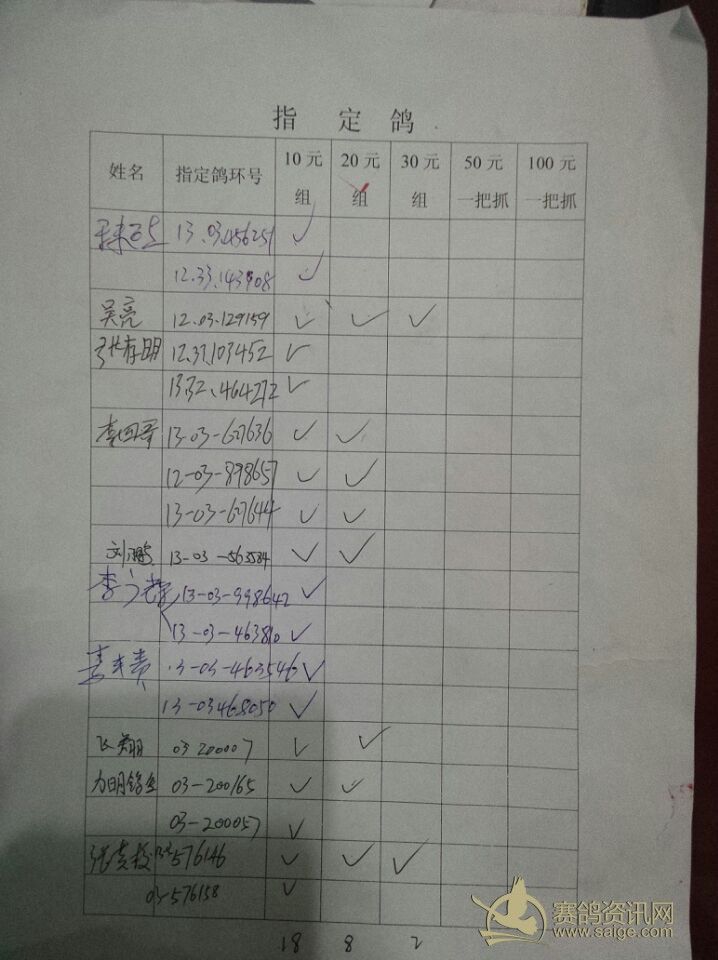 指 定 鸽
姓名 指定鸽环号 10元组 20元组 30元组 50元一把抓 100元一把抓
13.03.456251 ✓
12.33.143908 ✓
吴亮 12.03.129159 ✓ ✓ ✓
张存明 12.31.103452 ✓
13.32.464272 ✓
李四哥 13-03-627636 ✓ ✓
12-03-898657 ✓ ✓
13-03-627644 ✓ ✓
刘鹏 13-03-563584 ✓ ✓
13-03-998642 ✓
13-03-463810 ✓
13-03-463546 ✓
13-03468050 ✓
飞翔 03 200007 ✓ ✓
03-200165 ✓ ✓
03-200057 ✓
576146 ✓ ✓ ✓
03-576158 ✓
18 8 2
赛鸽资讯网
www.saige.com